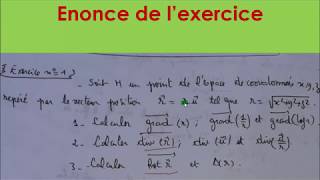 Enonce de l'exercice
Exercice n°=1
Soit M un point de l'espace de coordonnées x,y,z
repéré par le vecteur position r⃗ = r u⃗ tel que r = √x²+y²+z².
1_ Calculer grad (r), grad (1/r) et grad(log r)
2_ Calculer div (r⃗), div (u⃗) et div(
3_ Calculer Rot r⃗ et Δ(r).